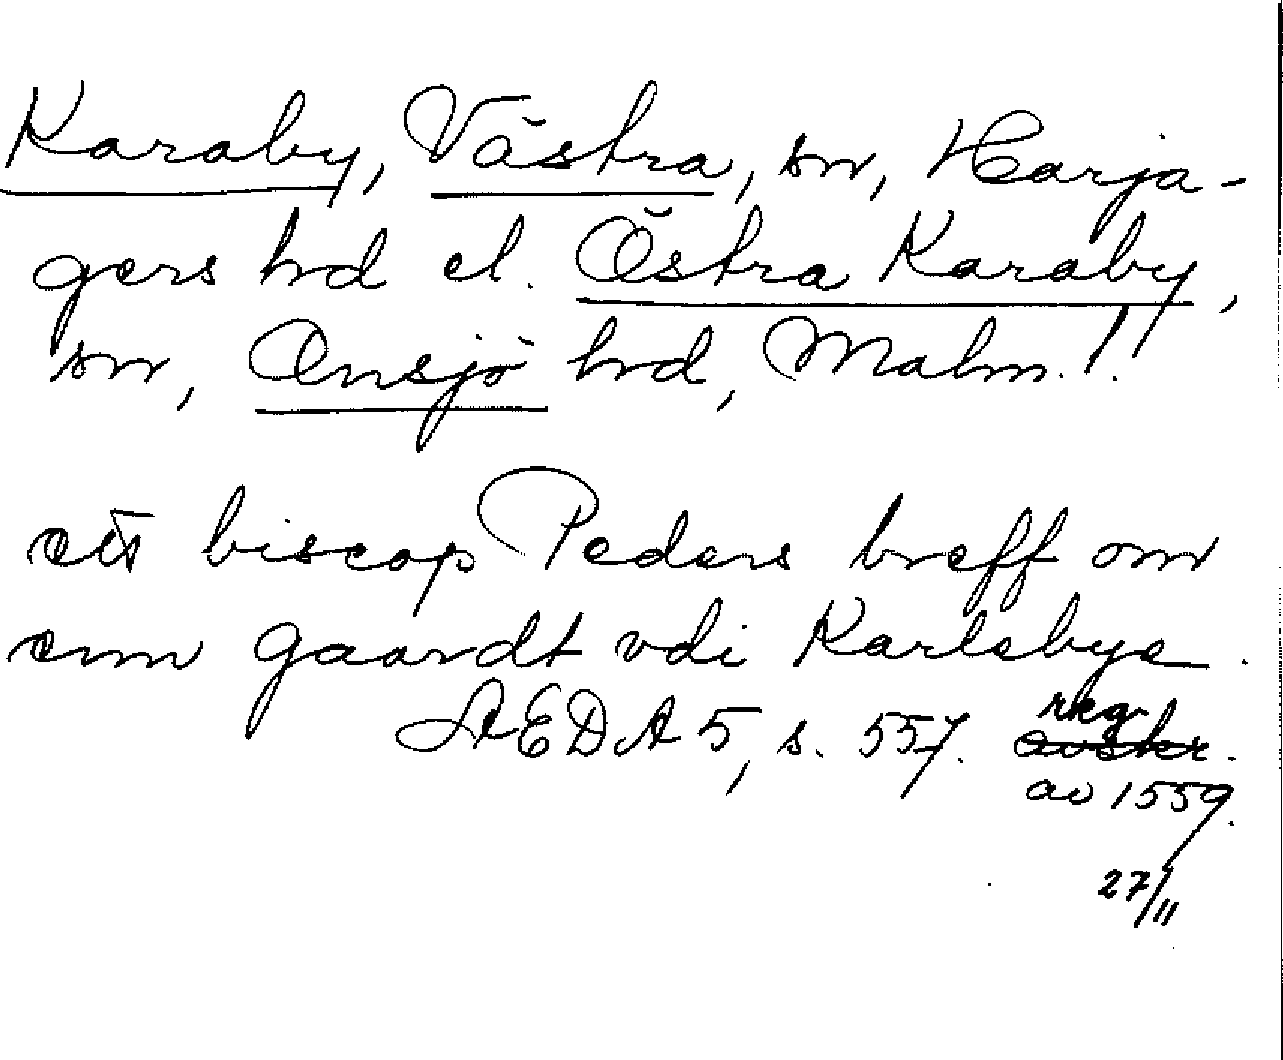 Karaby, Västra, sn, Harja-
gers hd el. Östra Karaby,
sn, Onsjö hd, Malm.!
ett biscop Peders breff om
enn gaardt vdi Karlebye.
ÆDA 5, s. 557. reg.
avskr.
av 1559.
27/11